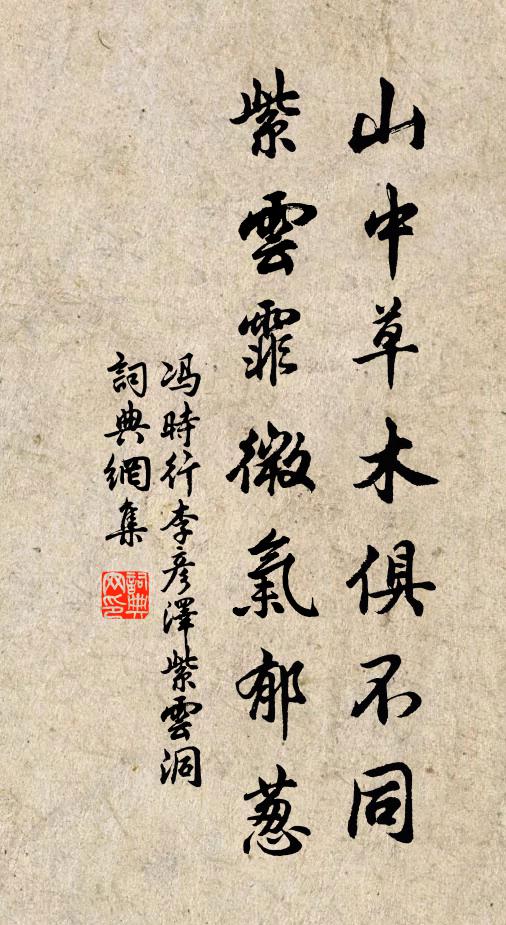 山中草木俱不同
紫雲霏微氣郁葱
冯時行李彦澤紫雲洞
詞典網集
詞典网印